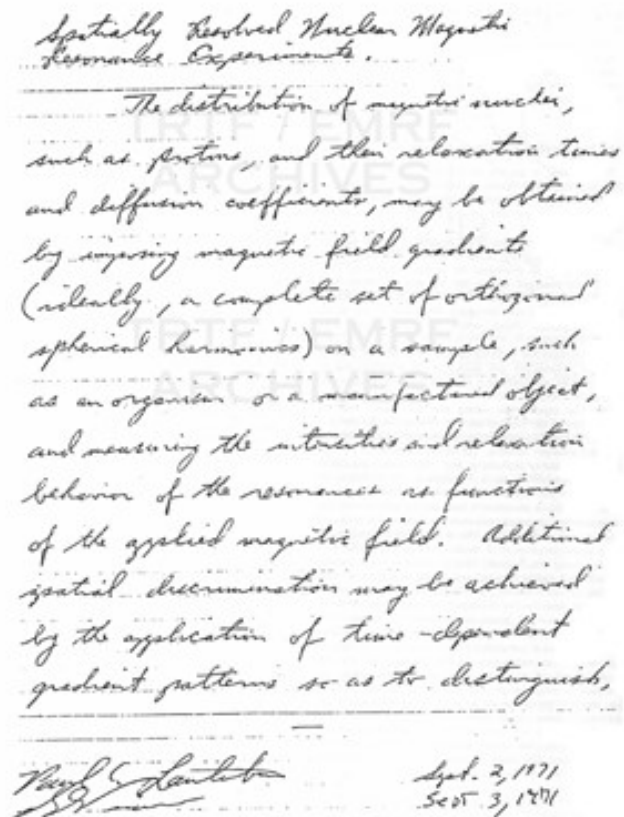 Spatially Resolved Nuclear Magnetic
Resonance Experiments.
The distribution of magnetic nuclei,
such as protons, and their relaxation times
and diffusion coefficients, may be obtained
by imposing magnetic field gradients
(ideally, a complete set of orthogonal
spherical harmonics) on a sample, such
as an organism or a manufactured object,
and measuring the intensities and relaxation
behavior of the resonances as functions
of the applied magnetic field. Additional
spatial discrimination may be achieved
by the application of time-dependent
gradient patterns so as to distinguish,
Paul C Lauterbur
Sept. 2, 1971
Sept 3, 1971
TRTF / EMRF
ARCHIVES
TRTF / EMRF
ARCHIVES